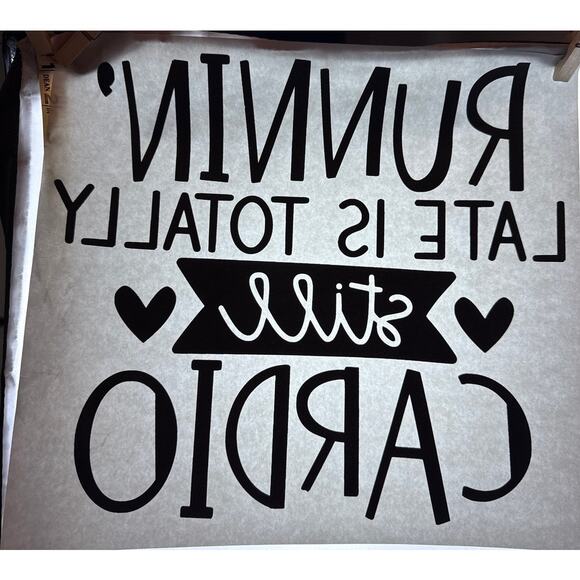 RUNNIN'
LATE IS TOTALLY
still
CARDIO
DEAN